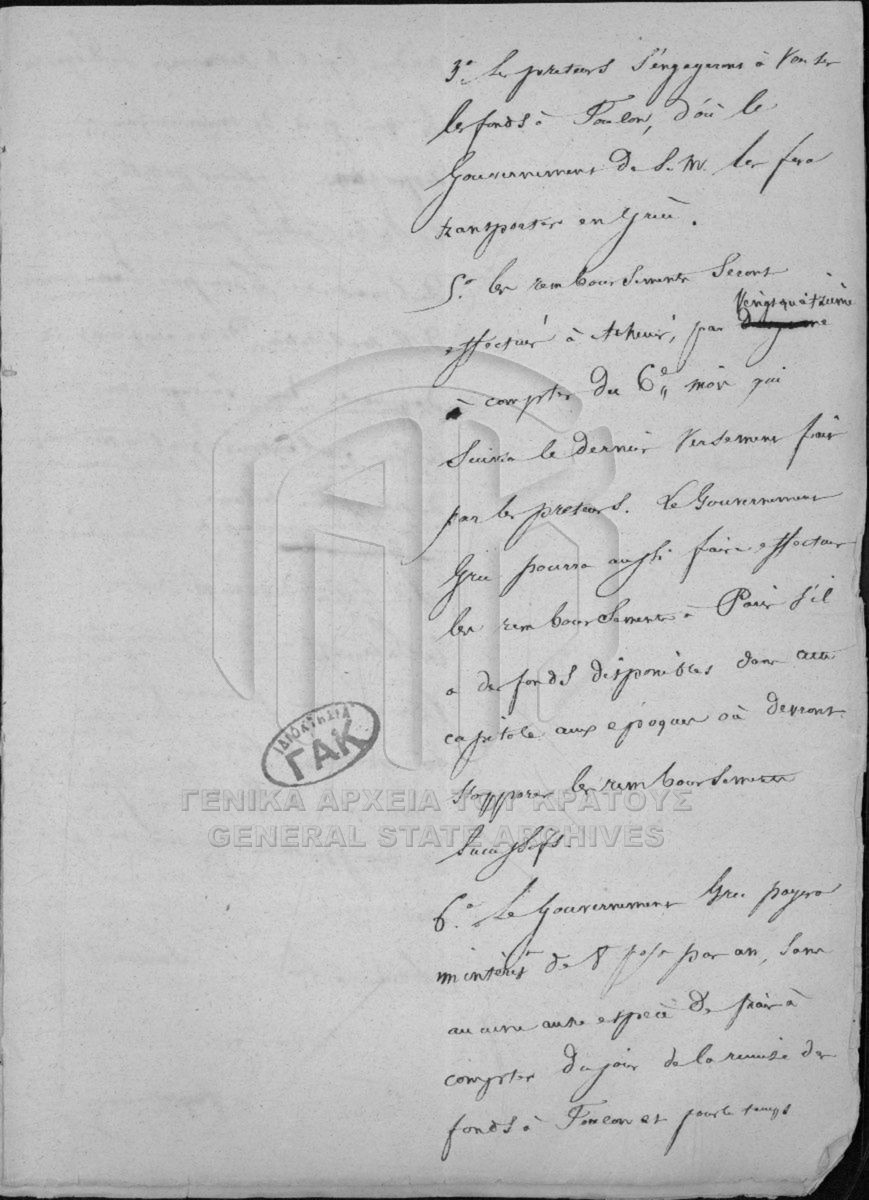 3.º Les preteurs s'engagerons à verser
les fonds à Toulon, d'où le
Gouvernement de S. M. les fera
transporter en Grèce.
5.º les remboursements seront
vingt quatrieme
effectués à Athenes, par
à compter du 6e mois qui
suivra le dernier versement fait
par les preteurs. Le Gouvernement
Grec pourra aussi faire effectuer
les remboursements à Paris s'il
a des fonds disponibles dans cette
capitale aux epoques où devront
s'opperer les remboursements
successifs
6.º Le Gouvernement Grec payera
un interêt de 8 p% par an, sans
aucune autre espece de frais à
compter du jour de la remise des
fonds à Toulon et pour le temps
ΙΔΙΟΚΤΗΣΙΑ
ΓΑΚ
ΓΕΝΙΚΑ ΑΡΧΕΙΑ ΤΟΥ ΚΡΑΤΟΥΣ
GENERAL STATE ARCHIVES